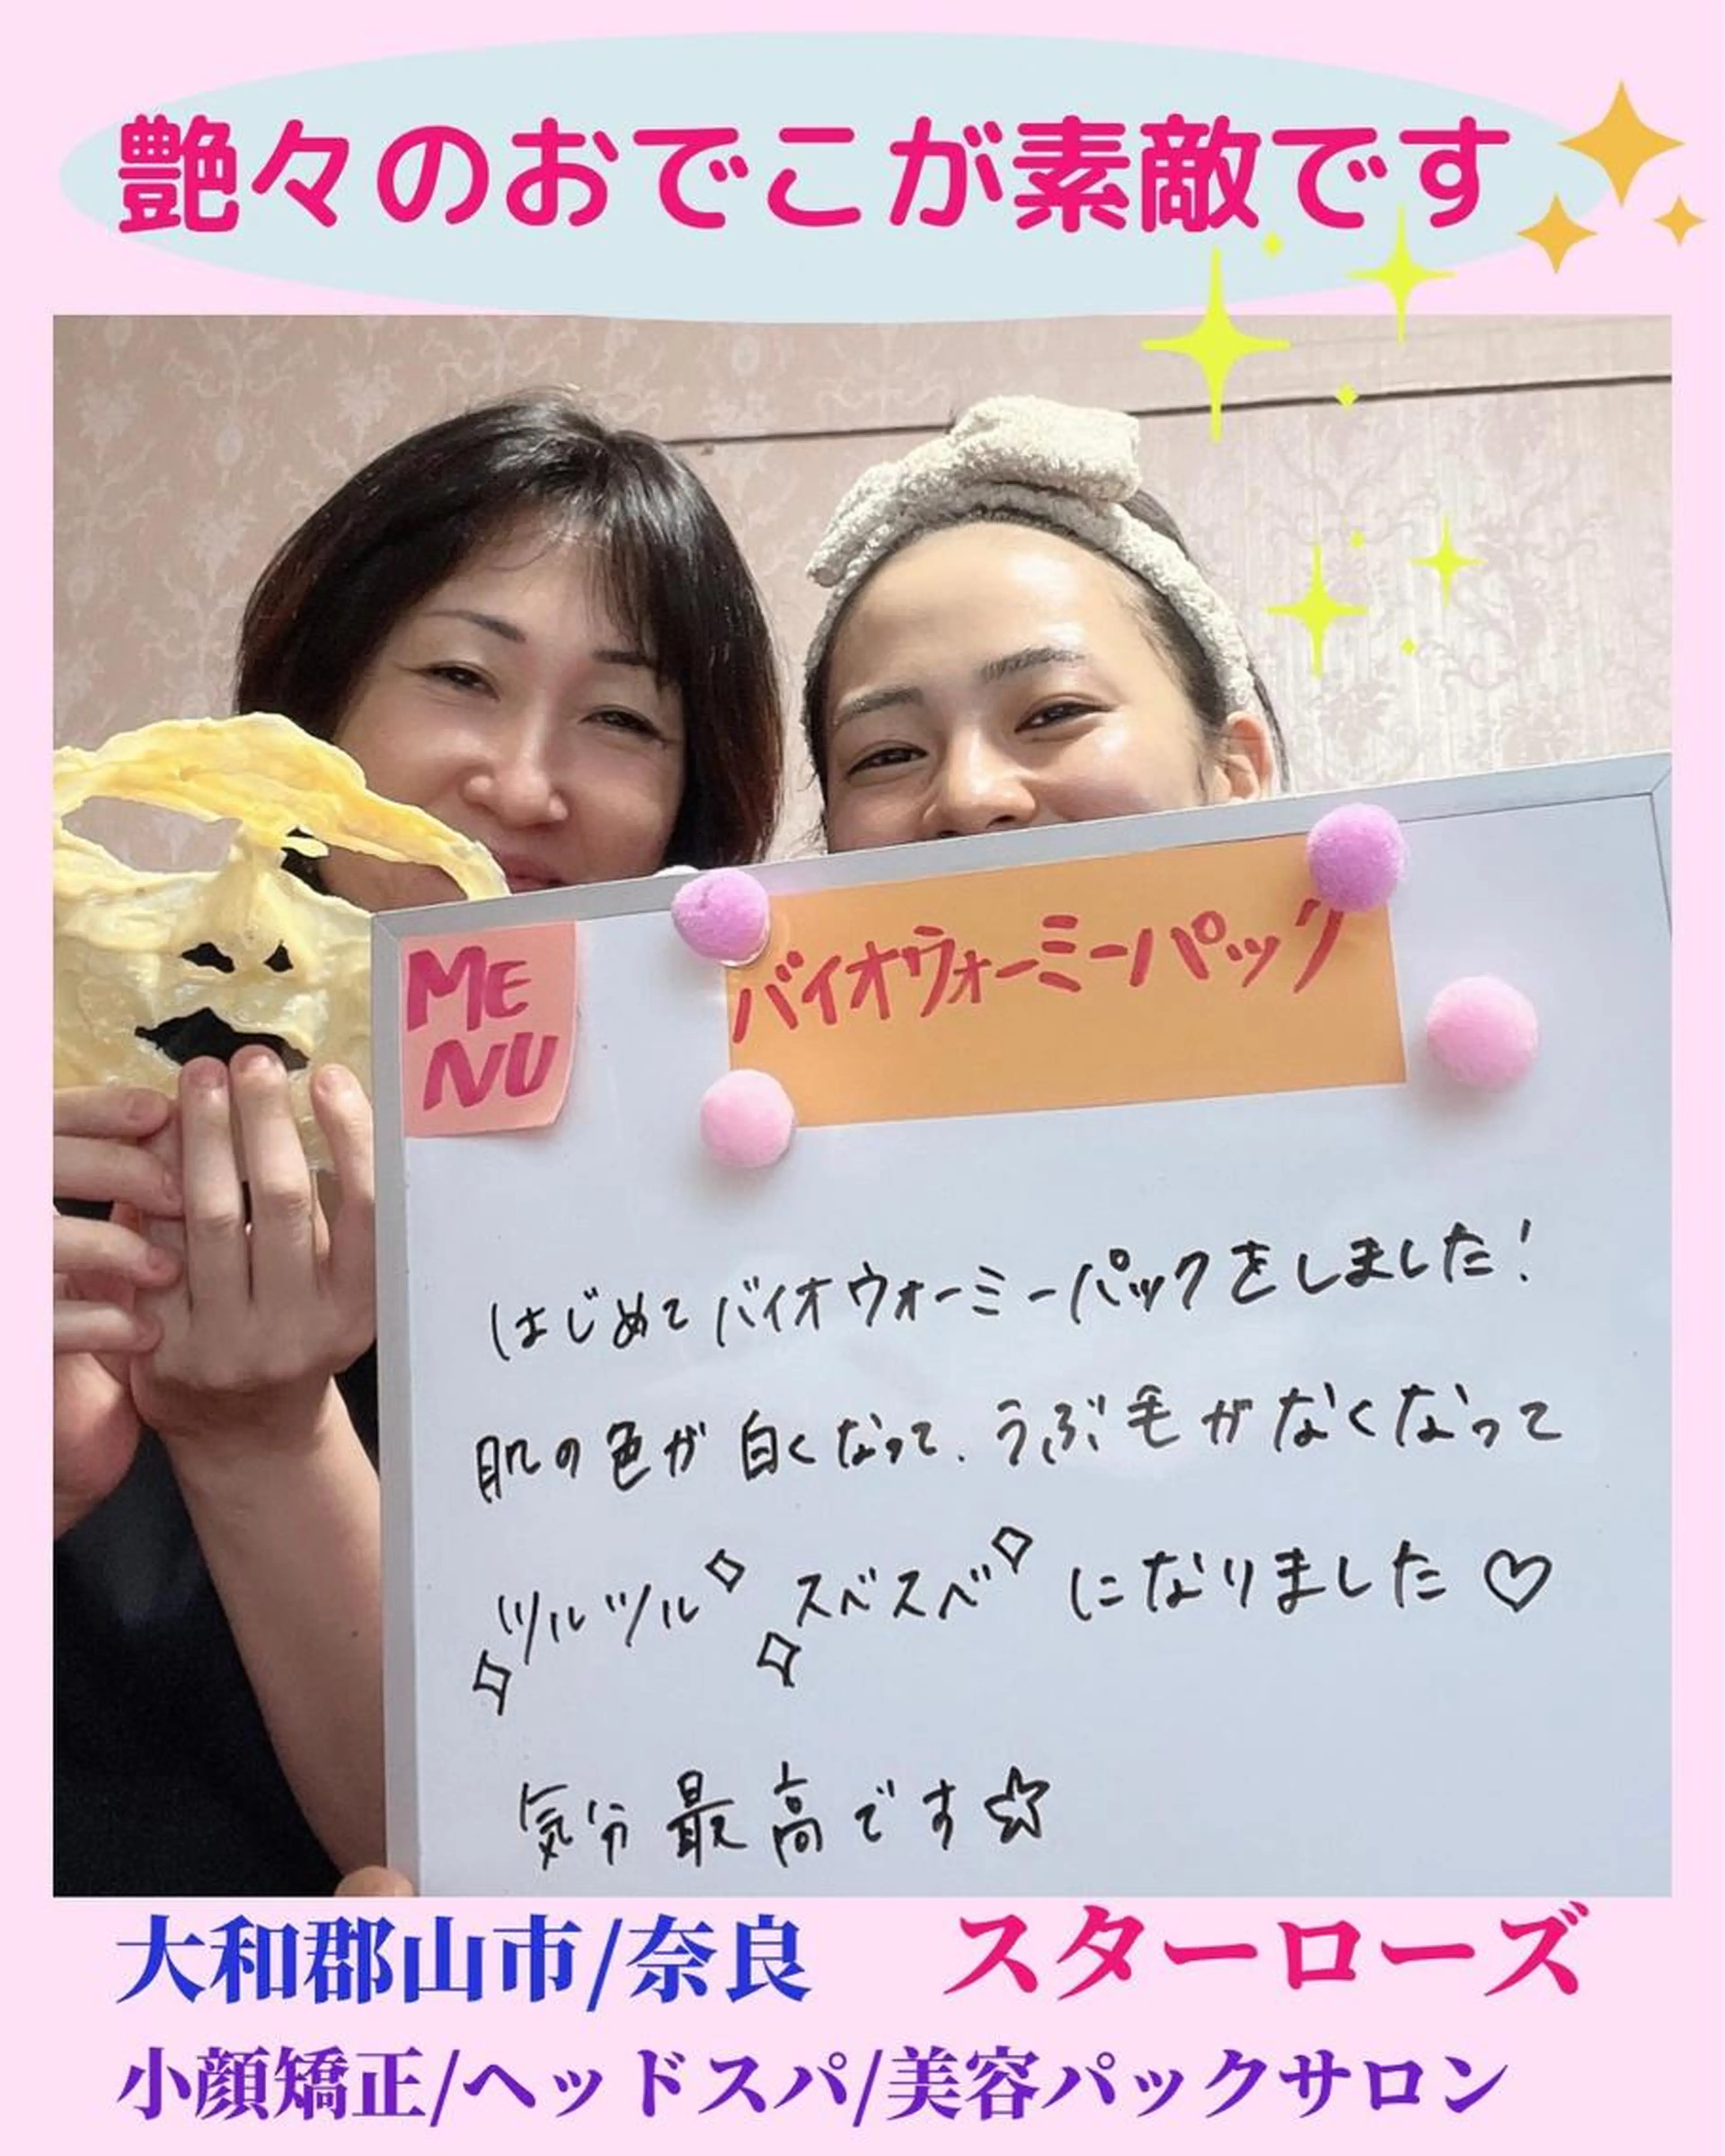 艶々のおでこが素敵です
ME
NU
バイオウォーミーパック
はじめてバイオウォーミーパックをしました!
肌の色が白くなって、うぶ毛がなくなって
ツルツル スベスベ になりました♡
気分最高です☆
大和郡山市/奈良 スターローズ
小顔矯正/ヘッドスパ/美容パックサロン